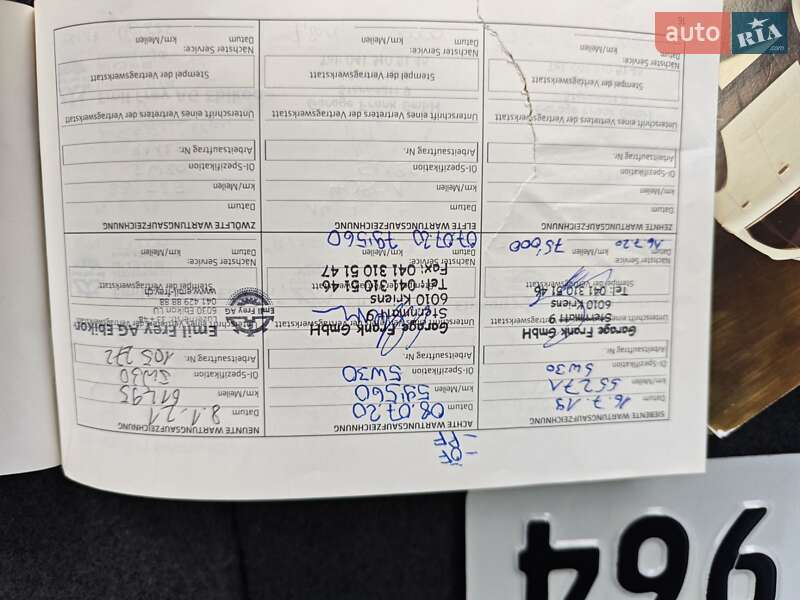 auto RIA
.com
- ÖF
- PF
SIEBENTE WARTUNGSAUFZEICHNUNG
Datum 16.7.19
km/Meilen 55271
Öl-Spezifikation 5W30
Arbeitsauftrag Nr.
Garage Frank GmbH
Sternmatt 9
6010 Kriens
Tel: 041 310 51 46
Nächster Service:
Datum 16.7.20 km/Meilen 75'000
ACHTE WARTUNGSAUFZEICHNUNG
Datum 08.07.20
km/Meilen 59'560
Öl-Spezifikation 5W30
Arbeitsauftrag Nr.
Garage Frank GmbH
Sternmatt 9
6010 Kriens
Tel: 041 310 51 46
Fax: 041 310 51 47
Datum 07.07.20 km/Meilen 79'560
NEUNTE WARTUNGSAUFZEICHNUNG
Datum 8.1.21
km/Meilen 61293
Öl-Spezifikation 5W30
Arbeitsauftrag Nr. 105272
Emil Frey AG Ebikon
6030 Ebikon LU
041 429 88 88
www.emil-frey.ch
Nächster Service:
Datum km/Meilen
ZEHNTE WARTUNGSAUFZEICHNUNG
Datum
km/Meilen
Öl-Spezifikation
Arbeitsauftrag Nr.
Unterschrift eines Vertreters der Vertragswerkstatt
Stempel der Vertragswerkstatt
Nächster Service:
Datum km/Meilen
ELFTE WARTUNGSAUFZEICHNUNG
Datum
km/Meilen
Öl-Spezifikation
Arbeitsauftrag Nr.
Unterschrift eines Vertreters der Vertragswerkstatt
Stempel der Vertragswerkstatt
Nächster Service:
Datum km/Meilen
ZWÖLFTE WARTUNGSAUFZEICHNUNG
Datum
km/Meilen
Öl-Spezifikation
Arbeitsauftrag Nr.
Unterschrift eines Vertreters der Vertragswerkstatt
Stempel der Vertragswerkstatt
Nächster Service:
Datum km/Meilen
16
964